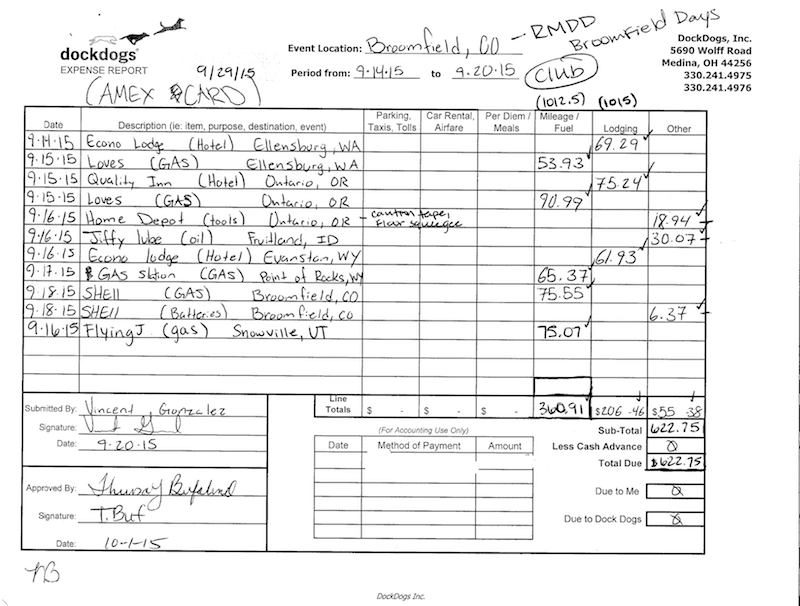 dockdogs
EXPENSE REPORT
9/29/15
(AMEX CARD)
Event Location: Broomfield, CO - RMDD
Broomfield Days
Period from: 9-14-15 to 9-20-15
club
DockDogs, Inc.
5690 Wolff Road
Medina, OH 44256
330.241.4975
330.241.4976
(1012.5) (1015)
Date Description (ie: item, purpose, destination, event) Parking, Taxis, Tolls Car Rental, Airfare Per Diem / Meals Mileage / Fuel Lodging Other
9-14-15 Econo Lodge (Hotel) Ellensburg, WA 69.29
9-15-15 Loves (GAS) Ellensburg, WA 53.93
9-15-15 Quality Inn (Hotel) Ontario, OR 75.24
9-15-15 Loves (GAS) Ontario, OR 90.99
9-16-15 Home Depot (tools) Ontario, OR - caution tape, floor squeegee 18.94
9-16-15 Jiffy lube (oil) Fruitland, ID 30.07
9-16-15 Econo lodge (Hotel) Evanston, WY 61.93
9-17-15 GAS station (GAS) Point of Rocks, WY 65.37
9-18-15 SHELL (GAS) Broomfield, CO 75.55
9-18-15 SHELL (Batteries) Broomfield, CO 6.37
9-16-15 Flying J (gas) Snowville, UT 75.07
Line Totals $ - $ - $ - 360.91 $206.46 $55.38
Submitted By: Vincent Gonzalez
Signature:
Date: 9-20-15
(For Accounting Use Only)
Date Method of Payment Amount
Sub-Total 622.75
Less Cash Advance 0
Total Due $622.75
Due to Me 0
Due to Dock Dogs 0
Approved By:
Signature: T. Buf
Date: 10-1-15
NB
DockDogs Inc.